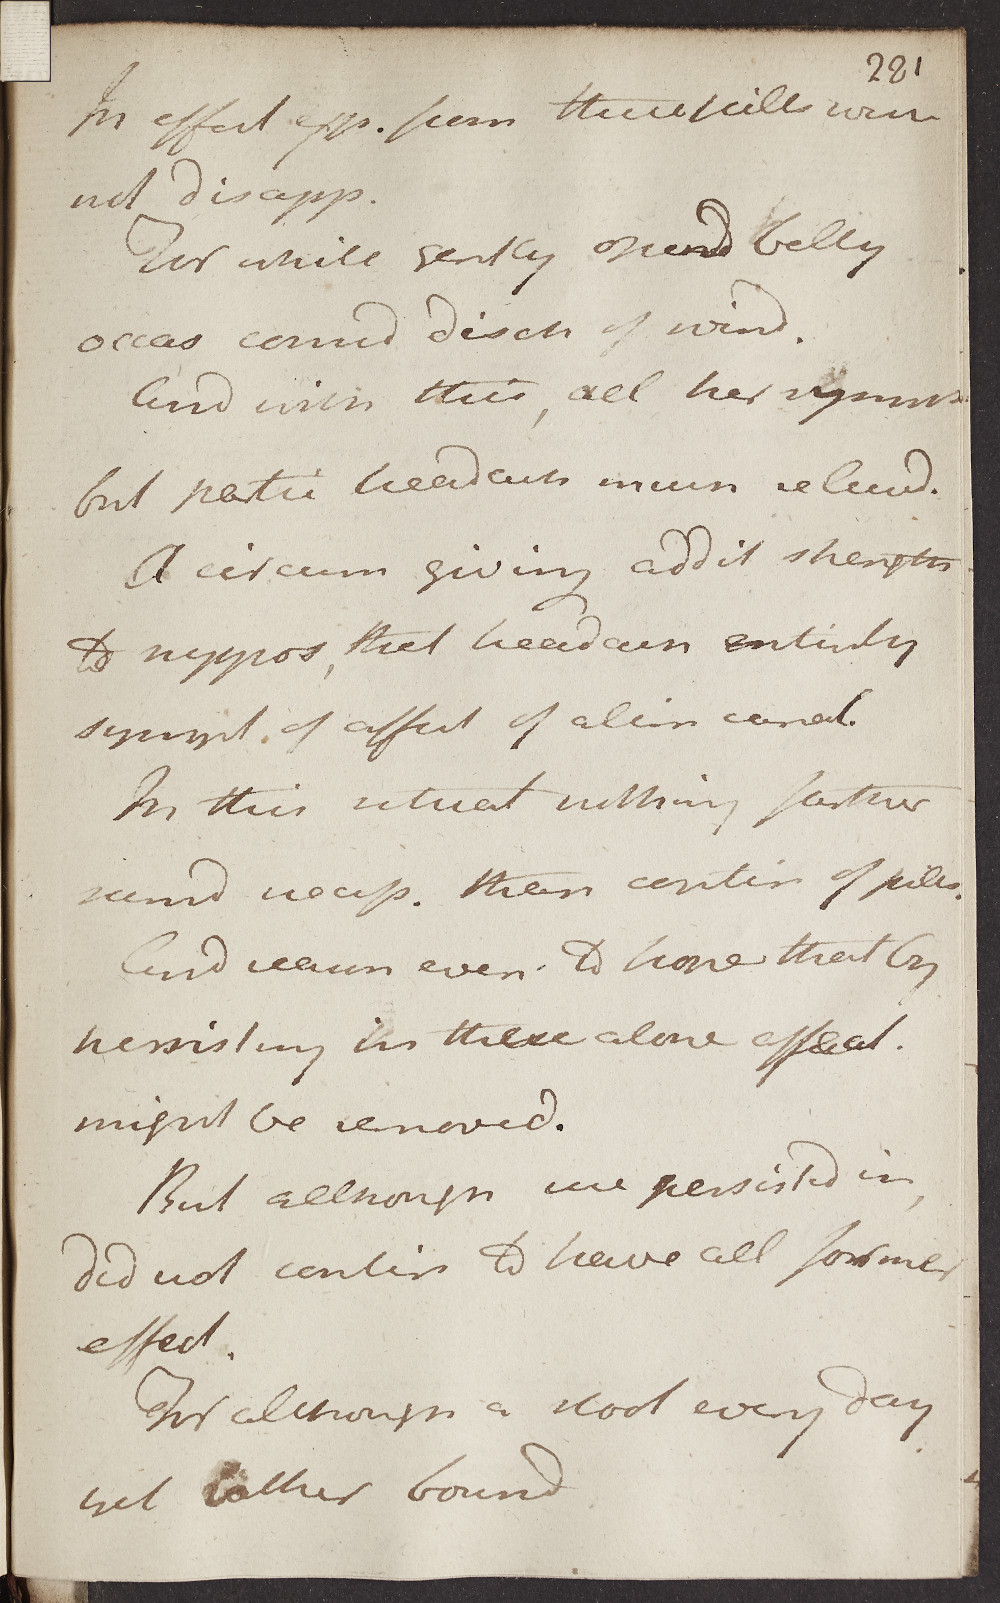 281
In effect exp. from these pills were
not disapp.
For while gently opend belly
occas consid disch of wind.
And with this, all her sympts
but partic headach much relievd.
A circum giving addit strength
to suppos, that headach entirely
sympt. of affect of alim canal.
In this situat nothing farther
seemd necess. than contin of pills.
And reason even to hope that by
persisting in these alone affect.
might be removed.
But although we persisted in,
did not contin to have all former
effect.
For although a stool every day
yet rather bound